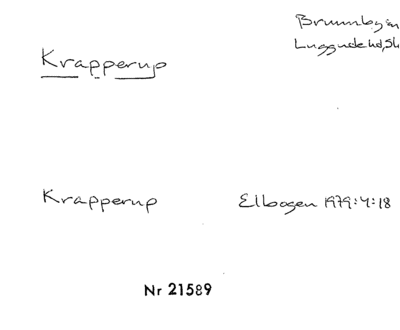 Krapperup
Luggude hd, Sk
Krapperup Elbogen 1979:4:18
Nr 21589